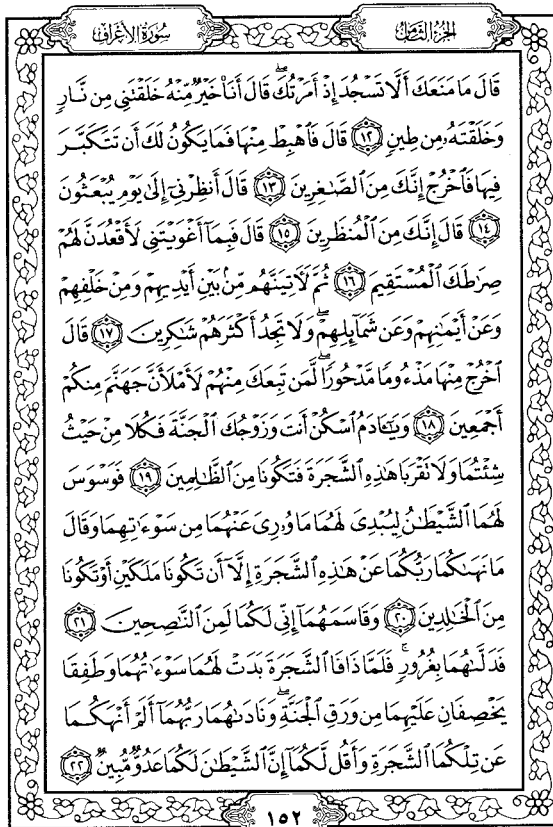 سُورَةُ الأَعْرَافِ
الجُزءُ الثَّامِنُ
قَالَ مَا مَنَعَكَ أَلَّا تَسْجُدَ إِذْ أَمَرْتُكَ ۖ قَالَ أَنَا۠ خَيْرٌ مِّنْهُ خَلَقْتَنِى مِن نَّارٍ
وَخَلَقْتَهُۥ مِن طِينٍ ١٢ قَالَ فَٱهْبِطْ مِنْهَا فَمَا يَكُونُ لَكَ أَن تَتَكَبَّرَ
فِيهَا فَٱخْرُجْ إِنَّكَ مِنَ ٱلصَّٰغِرِينَ ١٣ قَالَ أَنظِرْنِىٓ إِلَىٰ يَوْمِ يُبْعَثُونَ
١٤ قَالَ إِنَّكَ مِنَ ٱلْمُنظَرِينَ ١٥ قَالَ فَبِمَآ أَغْوَيْتَنِى لَأَقْعُدَنَّ لَهُمْ
صِرَٰطَكَ ٱلْمُسْتَقِيمَ ١٦ ثُمَّ لَءَاتِيَنَّهُم مِّنۢ بَيْنِ أَيْدِيهِمْ وَمِنْ خَلْفِهِمْ
وَعَنْ أَيْمَٰنِهِمْ وَعَن شَمَآئِلِهِمْ ۖ وَلَا تَجِدُ أَكْثَرَهُمْ شَٰكِرِينَ ١٧ قَالَ
ٱخْرُجْ مِنْهَا مَذْءُومًا مَّدْحُورًا ۖ لَّمَن تَبِعَكَ مِنْهُمْ لَأَمْلَأَنَّ جَهَنَّمَ مِنكُمْ
أَجْمَعِينَ ١٨ وَيَٰٓـَٔادَمُ ٱسْكُنْ أَنتَ وَزَوْجُكَ ٱلْجَنَّةَ فَكُلَا مِنْ حَيْثُ
شِئْتُمَا وَلَا تَقْرَبَا هَٰذِهِ ٱلشَّجَرَةَ فَتَكُونَا مِنَ ٱلظَّٰلِمِينَ ١٩ فَوَسْوَسَ
لَهُمَا ٱلشَّيْطَٰنُ لِيُبْدِىَ لَهُمَا مَا وُۥرِىَ عَنْهُمَا مِن سَوْءَٰتِهِمَا وَقَالَ
مَا نَهَىٰكُمَا رَبُّكُمَا عَنْ هَٰذِهِ ٱلشَّجَرَةِ إِلَّآ أَن تَكُونَا مَلَكَيْنِ أَوْ تَكُونَا
مِنَ ٱلْخَٰلِدِينَ ٢٠ وَقَاسَمَهُمَآ إِنِّى لَكُمَا لَمِنَ ٱلنَّٰصِحِينَ ٢١
فَدَلَّىٰهُمَا بِغُرُورٍ ۚ فَلَمَّا ذَاقَا ٱلشَّجَرَةَ بَدَتْ لَهُمَا سَوْءَٰتُهُمَا وَطَفِقَا
يَخْصِفَانِ عَلَيْهِمَا مِن وَرَقِ ٱلْجَنَّةِ ۖ وَنَادَىٰهُمَا رَبُّهُمَآ أَلَمْ أَنْهَكُمَا
عَن تِلْكُمَا ٱلشَّجَرَةِ وَأَقُل لَّكُمَآ إِنَّ ٱلشَّيْطَٰنَ لَكُمَا عَدُوٌّ مُّبِينٌ ٢٢
١٥٢